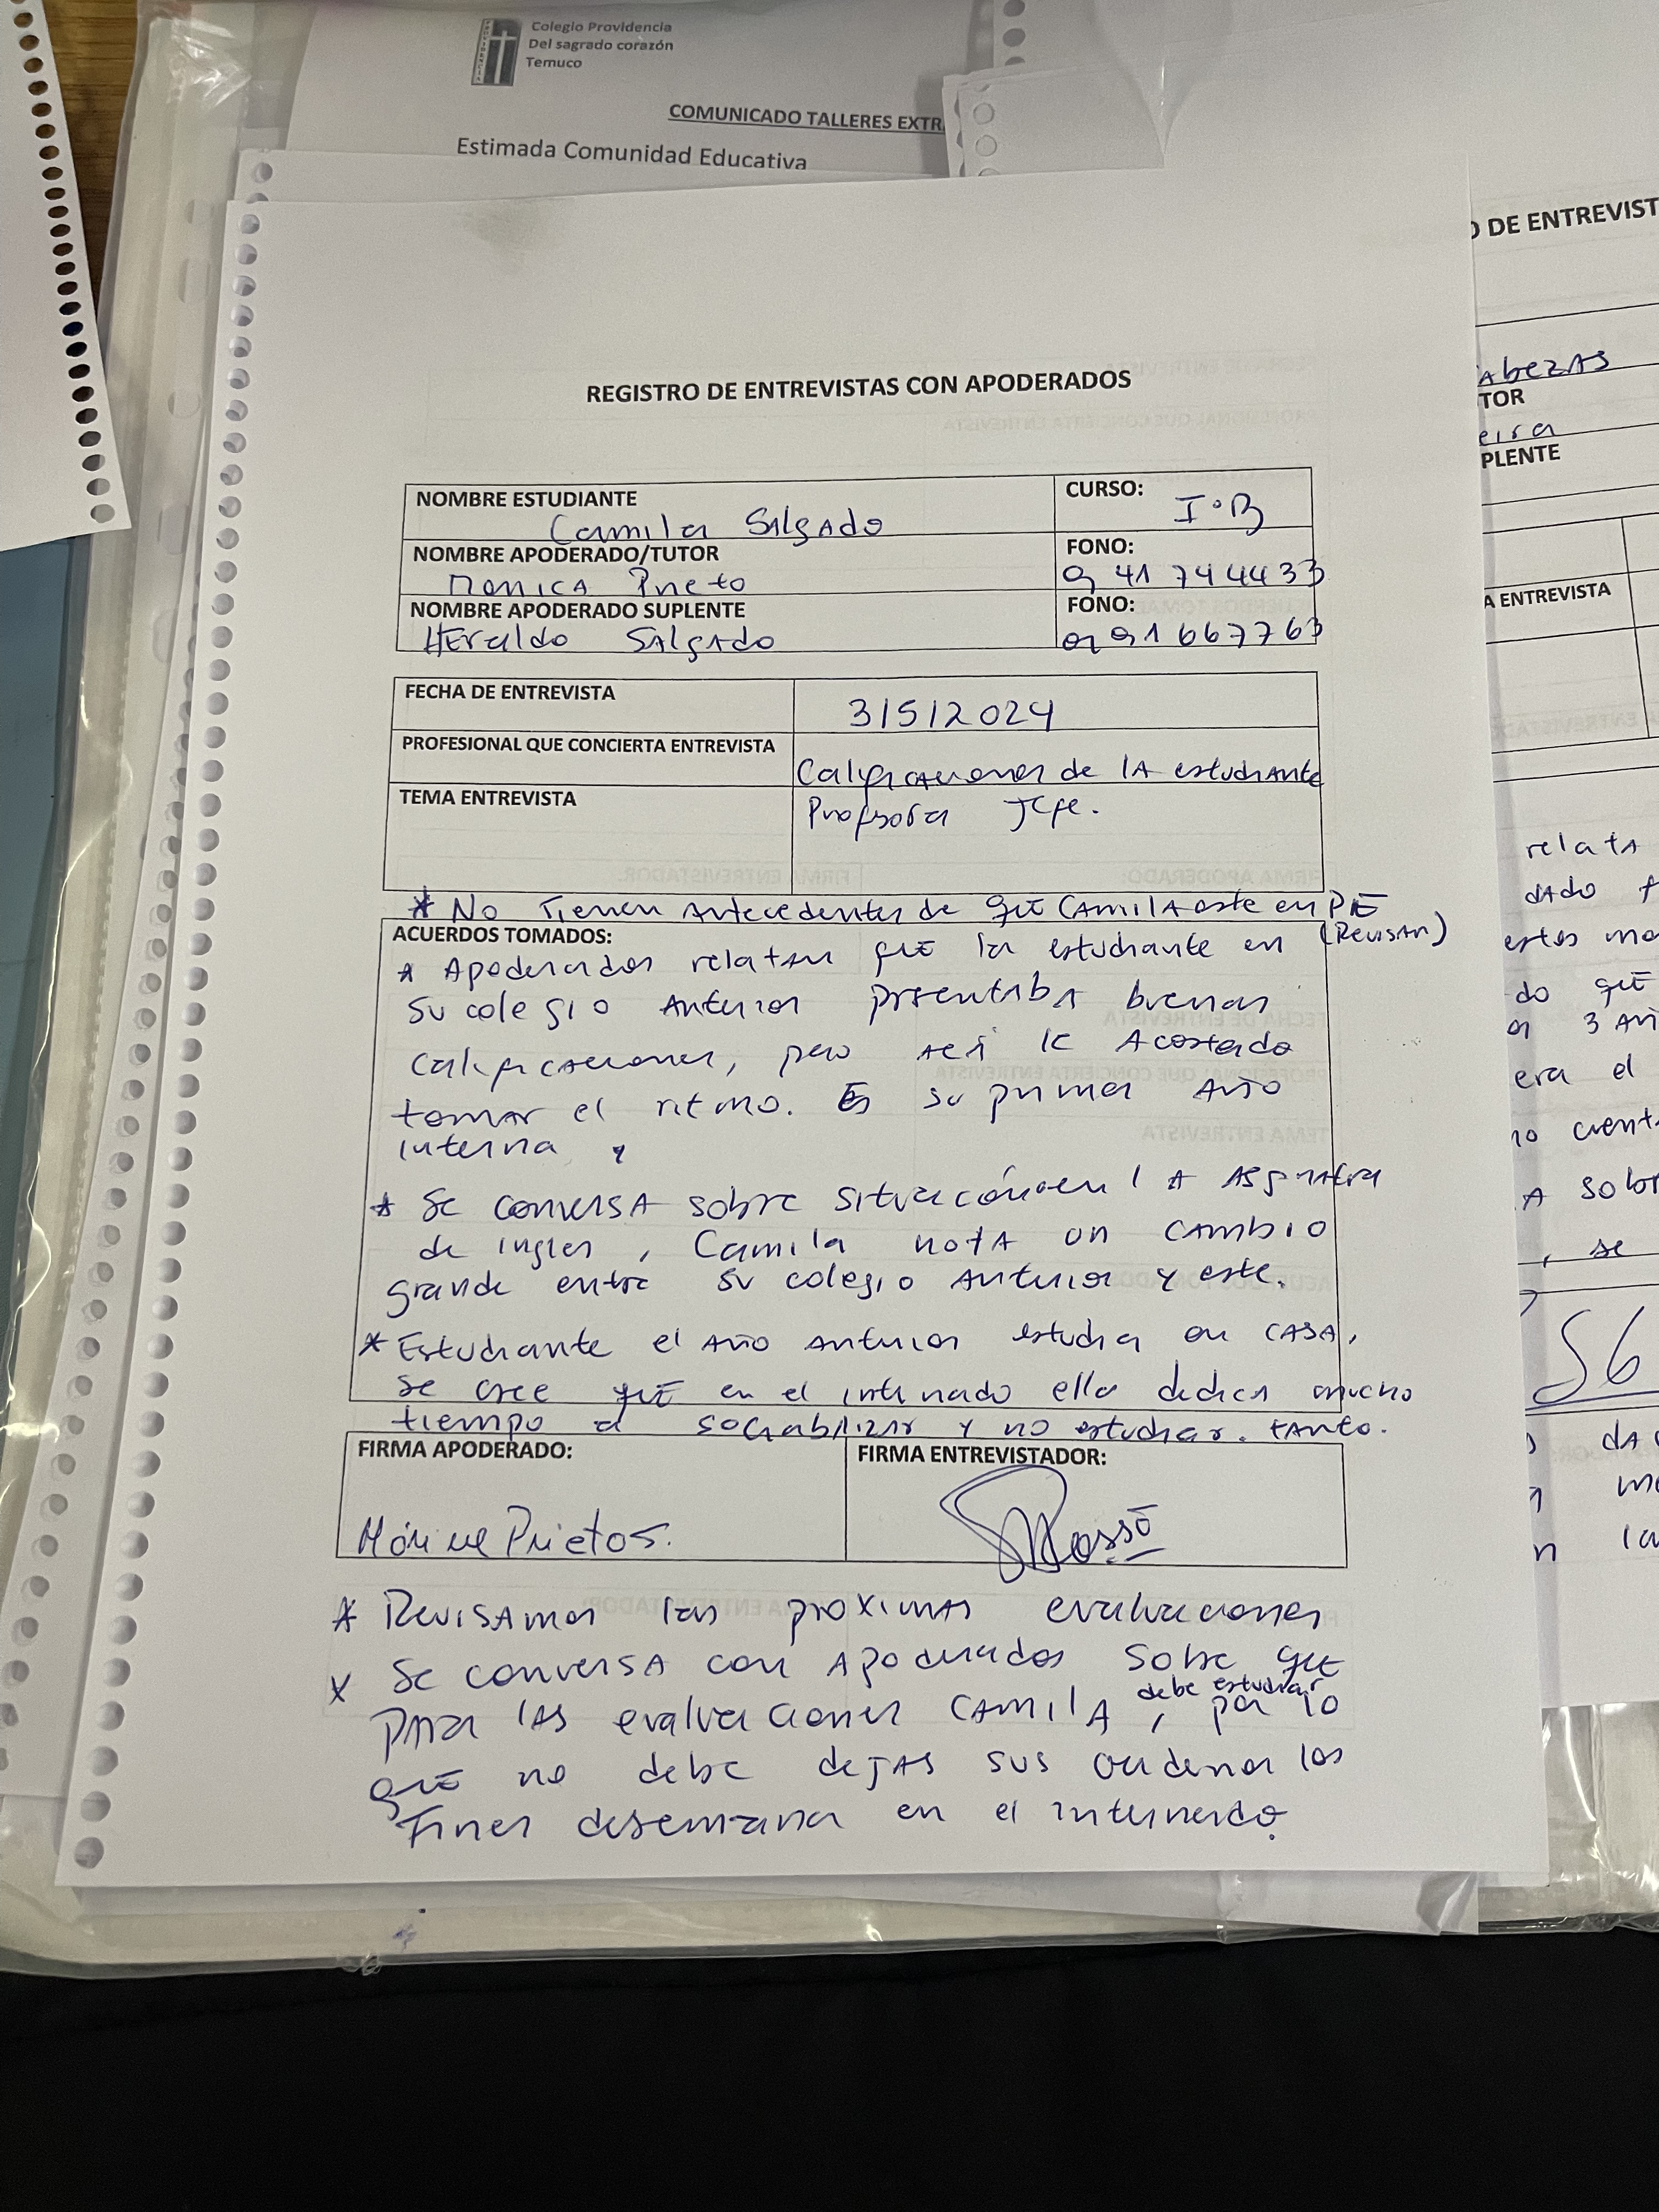 Colegio Providencia
Del sagrado corazón
Temuco
COMUNICADO TALLERES EXTR
Estimada Comunidad Educativa
REGISTRO DE ENTREVISTAS CON APODERADOS
NOMBRE ESTUDIANTE
Camila Salgado
CURSO:
I°B
NOMBRE APODERADO/TUTOR
Monica Prieto
FONO:
9 41 744433
NOMBRE APODERADO SUPLENTE
Heraldo Salgado
FONO:
9 91667763
FECHA DE ENTREVISTA
3/5/2024
PROFESIONAL QUE CONCIERTA ENTREVISTA
Calificaciones de la estudiante
TEMA ENTREVISTA
Profesora Jefe.
* No tienen antecedentes de que Camila este en PIE
(Revisar)
ACUERDOS TOMADOS:
* Apoderados relatan que la estudiante en
su colegio anterior presentaba buenas
calificaciones, pero acá le a costado
tomar el ritmo. Es su primer año
interna y
* Se conversa sobre situación en la asignatura
de ingles, Camila nota un cambio
grande entre su colegio anterior y este.
* Estudiante el año anterior estudia en casa,
se cree que en el internado ella dedica mucho
tiempo a sociabilizar y no estudiar tanto.
FIRMA APODERADO:
FIRMA ENTREVISTADOR:
Mónica Prieto S.
* Revisamos las proximas evaluaciones
x Se conversa con apoderados sobre que
para las evaluaciones Camila debe estudiar, por lo
que no debe dejas sus cuadernos los
fines de semana en el internado.
O DE ENTREVIST
abezas
TOR
eira
PLENTE
A ENTREVISTA
relata
dado
estos
do que
3
era el
no
a
, se
56